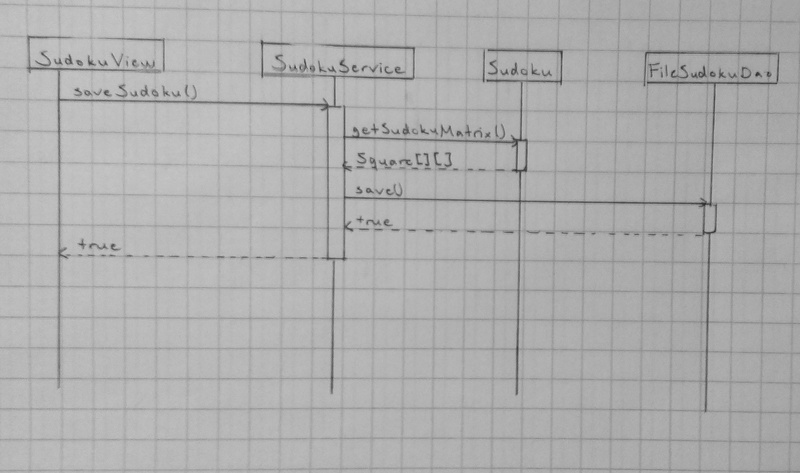 SudokuView
SudokuService
Sudoku
FileSudokuDao
saveSudoku()
getSudokuMatrix()
Square[][]
save()
true
true